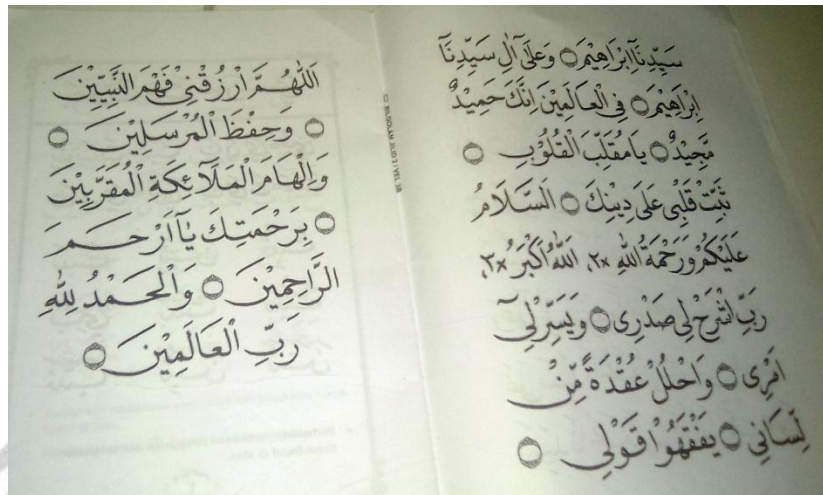 سَيِّدِنَآ اِبْرَاهِيْمَ ۝ وَعَلَىٰٓ اٰلِ سَيِّدِنَآ
اِبْرَاهِيْمَ ۝ فِى الْعَالَمِيْنَ اِنَّكَ حَمِيْدٌ
مَّجِيْدٌ ۝ يَا مُقَلِّبَ الْقُلُوْبِ ۝
ثَبِّتْ قَلْبِى عَلَى دِيْنِكَ ۝ اَلسَّلَامُ
عَلَيْكُمْ وَرَحْمَةُ اللّٰهِ ×٢، اَللّٰهُ اَكْبَرُ ×٣،
رَبِّ اشْرَحْ لِى صَدْرِى ۝ وَيَسِّرْ لِىٓ
اَمْرِى ۝ وَاحْلُلْ عُقْدَةً مِّنْ
لِّسَانِى ۝ يَفْقَهُوْا قَوْلِى ۝
اَللّٰهُمَّ ارْزُقْنِىْ فَهْمَ النَّبِيِّيْنَ
۝ وَحِفْظَ الْمُرْسَلِيْنَ ۝
وَاِلْهَامَ الْمَلَآئِكَةِ الْمُقَرَّبِيْنَ
۝ بِرَحْمَتِكَ يَآ اَرْحَمَ
الرَّاحِمِيْنَ ۝ وَالْحَمْدُ لِلّٰهِ
رَبِّ الْعَالَمِيْنَ ۝